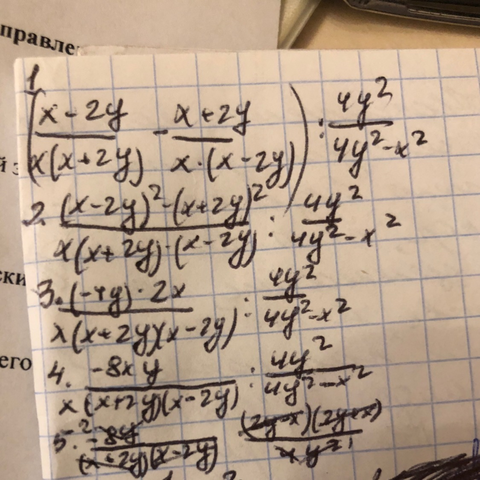 правле
1
(x-2y / x(x+2y) - x+2y / x·(x-2y)) : 4y² / 4y²-x²
2. (x-2y)²-(x+2y)² / x(x+2y)·(x-2y) : 4y² / 4y²-x²
3. (-4y)·2x / x(x+2y)(x-2y) : 4y² / 4y²-x²
4. -8xy / x(x+2y)(x-2y) : 4y² / 4y²-x²
его
5. -2 -8y / (x+2y)(x-2y) · (2y-x)(2y+x) / 4y²